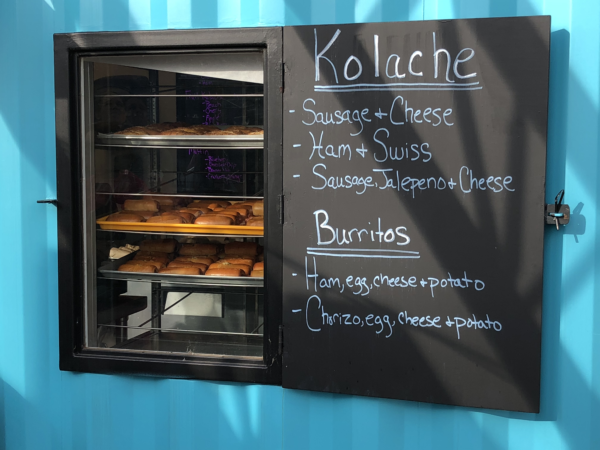 Kolache
- Sausage + Cheese
- Ham + Swiss
- Sausage, Jalepeno + Cheese
Burritos
- Ham, egg, cheese + potato
- Chorizo, egg, cheese + potato